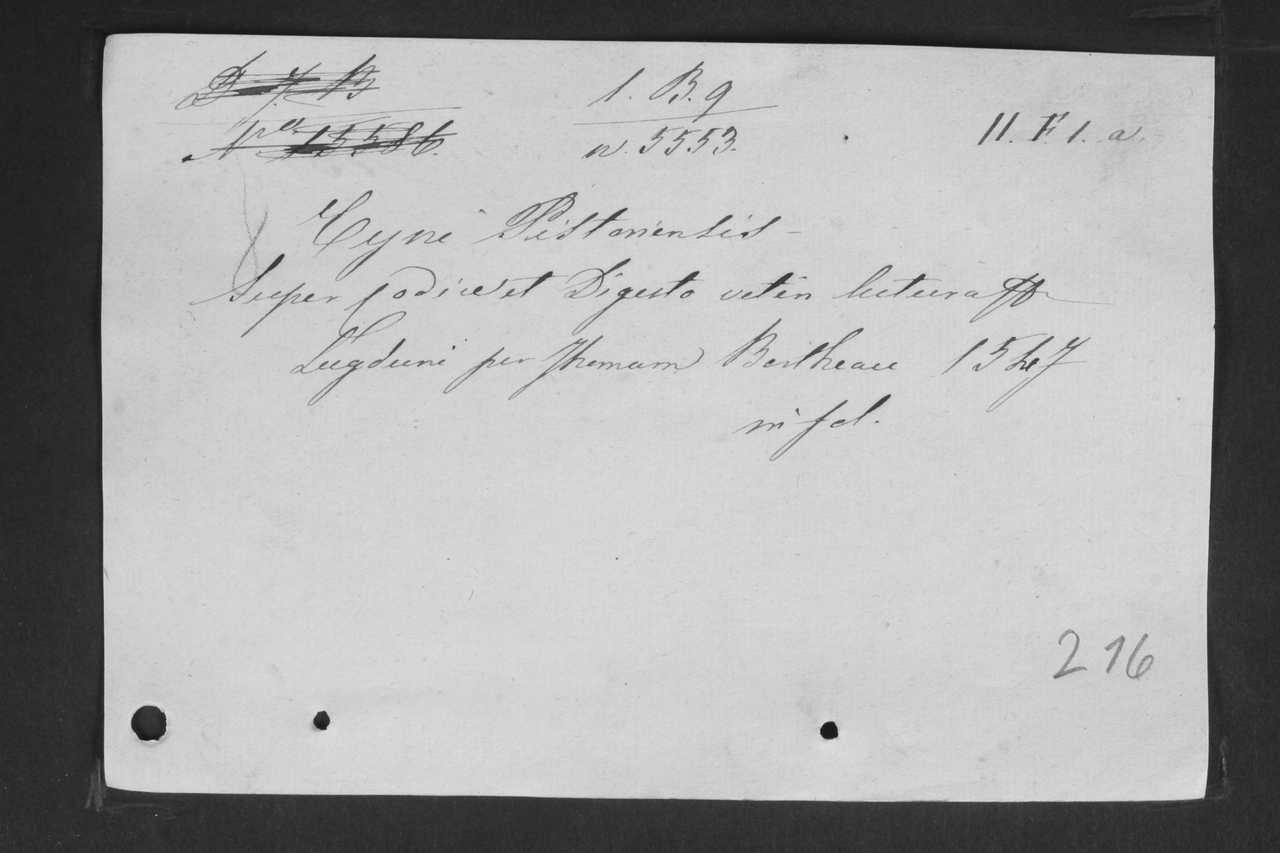 D. 7. B
1. B. 9
Nro 15586.
n. 5553.
II. F 1. a.
Cyni Pistoriensis -
Super Codice et Digesto veteri lectura
Lugduni per Thomam Bertheau 1547
in fol.
216